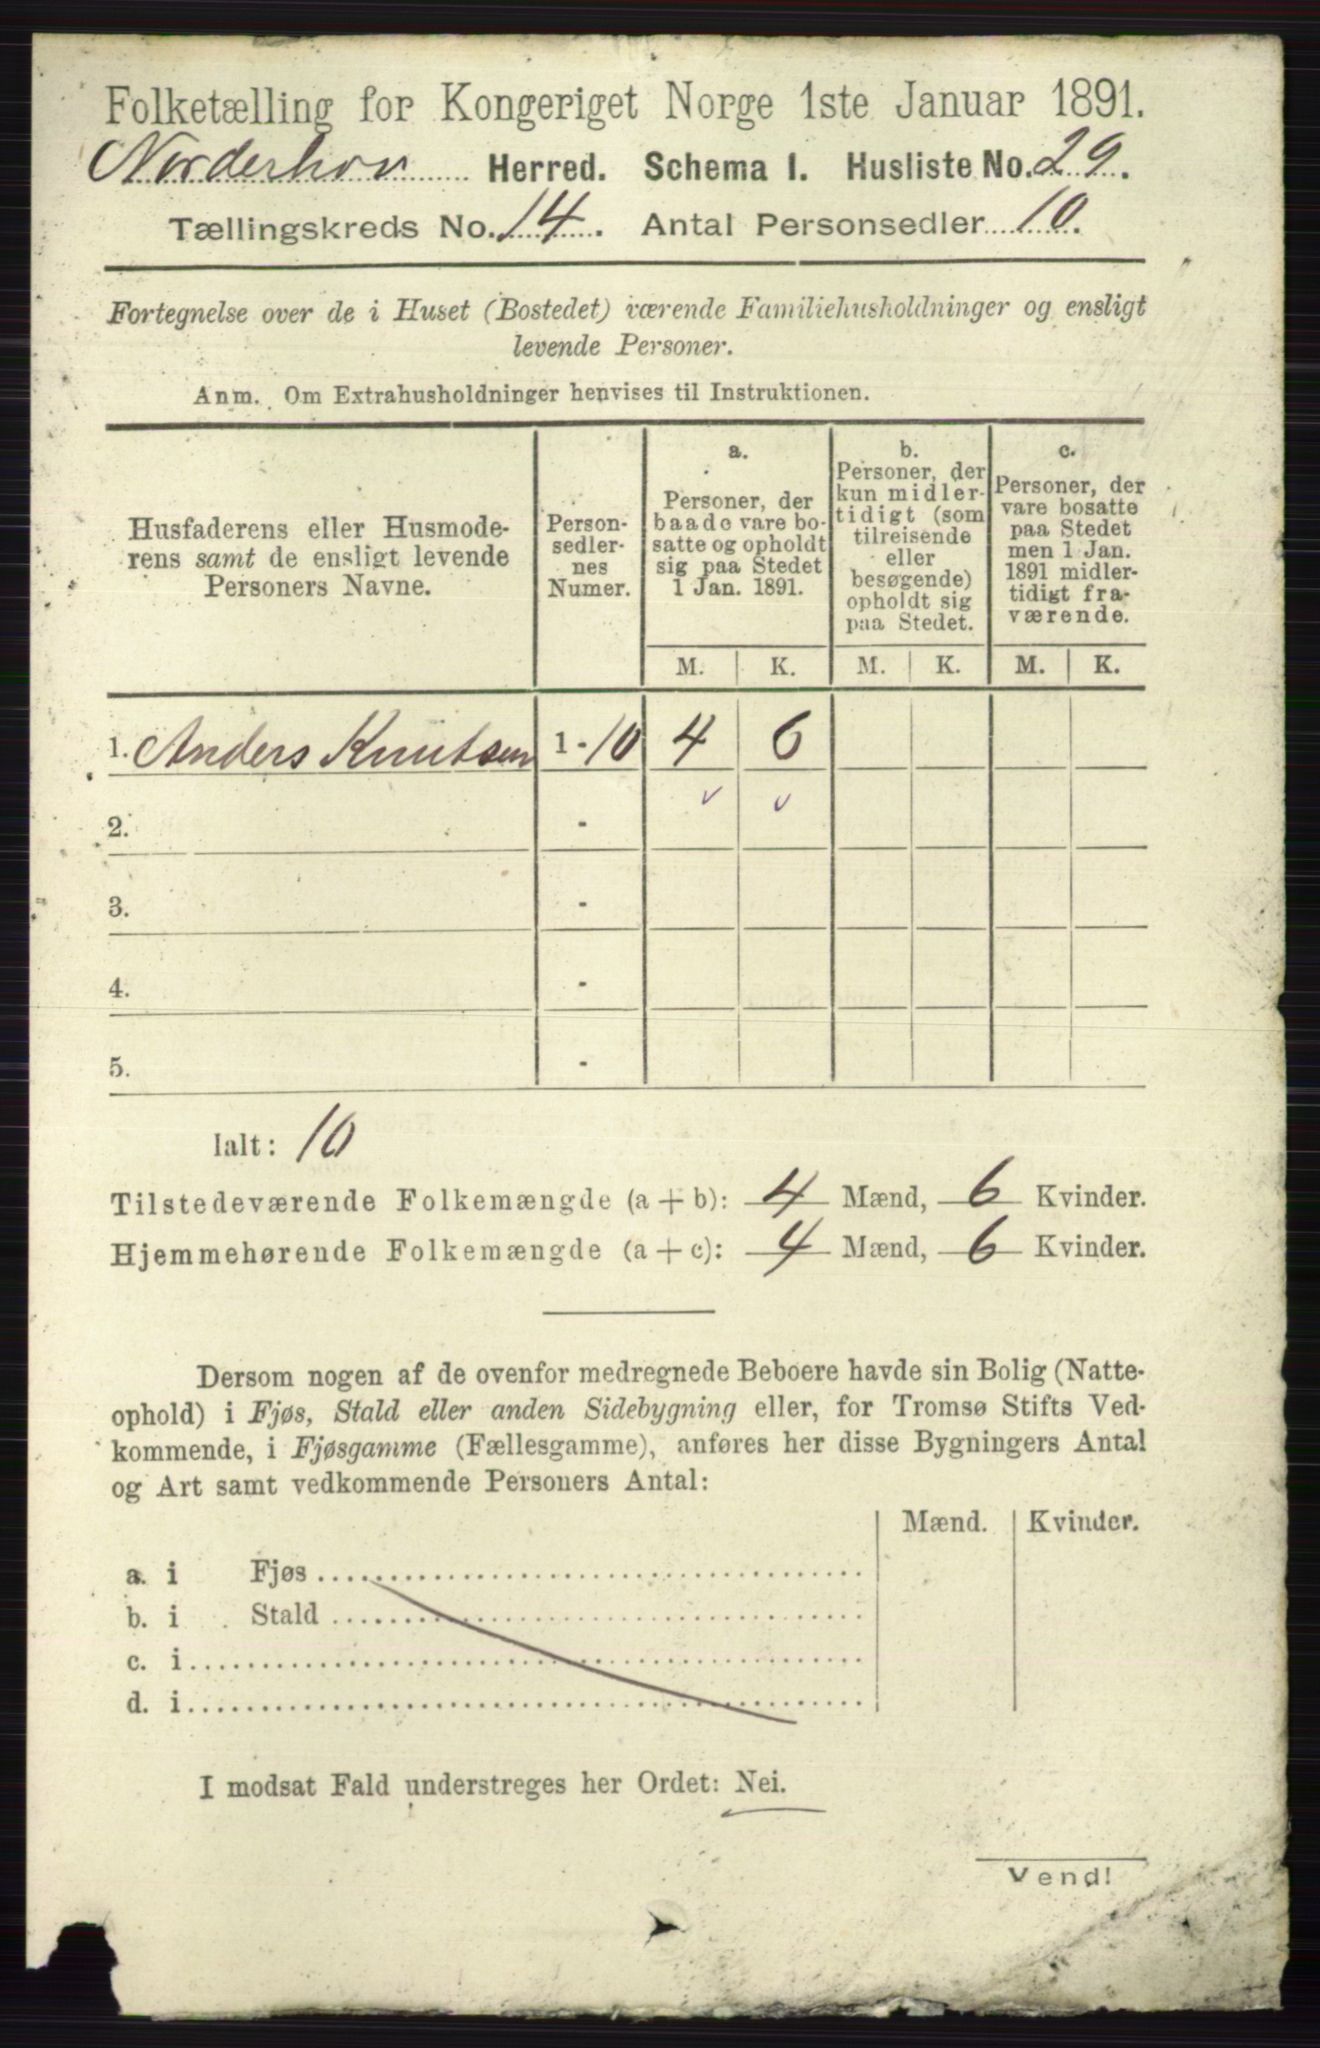 Folketælling for Kongeriget Norge 1ste Januar 1891.
Norderhov Herred. Schema I. Husliste No. 29.
Tællingskreds No. 14. Antal Personsedler 10.
Fortegnelse over de i Huset (Bostedet) værende Familiehusholdninger og ensligt
levende Personer.
Anm. Om Extrahusholdninger henvises til Instruktionen.
Husfaderens eller Husmode-
rens samt de ensligt levende
Personers Navne.
Person-
sedler-
nes
Numer.
a.
Personer, der
baade vare bo-
satte og opholdt
sig paa Stedet
1 Jan. 1891.
b.
Personer, der
kun midler-
tidigt (som
tilreisende
eller
besøgende)
opholdt sig
paa Stedet.
c.
Personer, der
vare bosatte
paa Stedet
men 1 Jan.
1891 midler-
tidigt fra-
værende.
M. K. M. K. M. K.
1. Anders Knutsen 1 - 10 4 6
2. -
3. -
4. -
5. -
Ialt: 10
Tilstedeværende Folkemængde (a + b): 4 Mænd, 6 Kvinder.
Hjemmehørende Folkemængde (a + c): 4 Mænd, 6 Kvinder.
Dersom nogen af de ovenfor medregnede Beboere havde sin Bolig (Natte-
ophold) i Fjøs, Stald eller anden Sidebygning eller, for Tromsø Stifts Ved-
kommende, i Fjøsgamme (Fællesgamme), anføres her disse Bygningers Antal
og Art samt vedkommende Personers Antal:
Mænd. Kvinder.
a. i Fjøs
b. i Stald
c. i
d. i
I modsat Fald understreges her Ordet: Nei.
Vend!